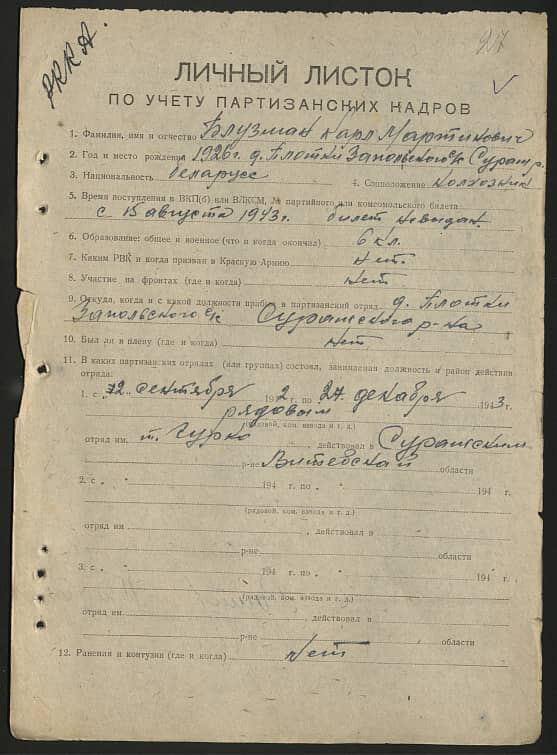 РККА.
27
ЛИЧНЫЙ ЛИСТОК
ПО УЧЕТУ ПАРТИЗАНСКИХ КАДРОВ
1. Фамилия, имя и отчество Блузман Карл Мартинович
2. Год и место рождения 1926г. д. Плотки Запольского с/с Сураж. р.
3. Национальность беларусс 4. Соцположение колхозник
5. Время поступления в ВКП(б) или ВЛКСМ, № партийного или комсомольского билета
с 15 августа 1943г. билет невыдан.
6. Образование: общее и военное (что и когда окончил) 6 кл.
7. Каким РВК и когда призван в Красную Армию нет.
8. Участие на фронтах (где и когда) нет
9. Откуда, когда и с какой должности прибыл в партизанский отряд д. Плотки
Запольского с/с Суражского р-на
10. Был ли в плену (где и когда) нет
11. В каких партизанских отрядах (или группах) состоял, занимаемая должность и район действия
отряда:
1. с „12" сентября 1942 г. по „27 декабря 1943 г.
рядовым
(рядовой, ком. взвода и т. д.)
отряд им. т. Гурко, действовал в Суражском
р-не Витебской области
2. с „ " 194 г. по „ " 194 г.
(рядовой, ком. взвода и т. д.)
отряд им , действовал в
р-не области
3. с „ " 194 г. по „ " 194 г.
(рядовой, ком. взвода и т. д.)
отряд им. , действовал в
р-не области
12. Ранения и контузии (где и когда) нет